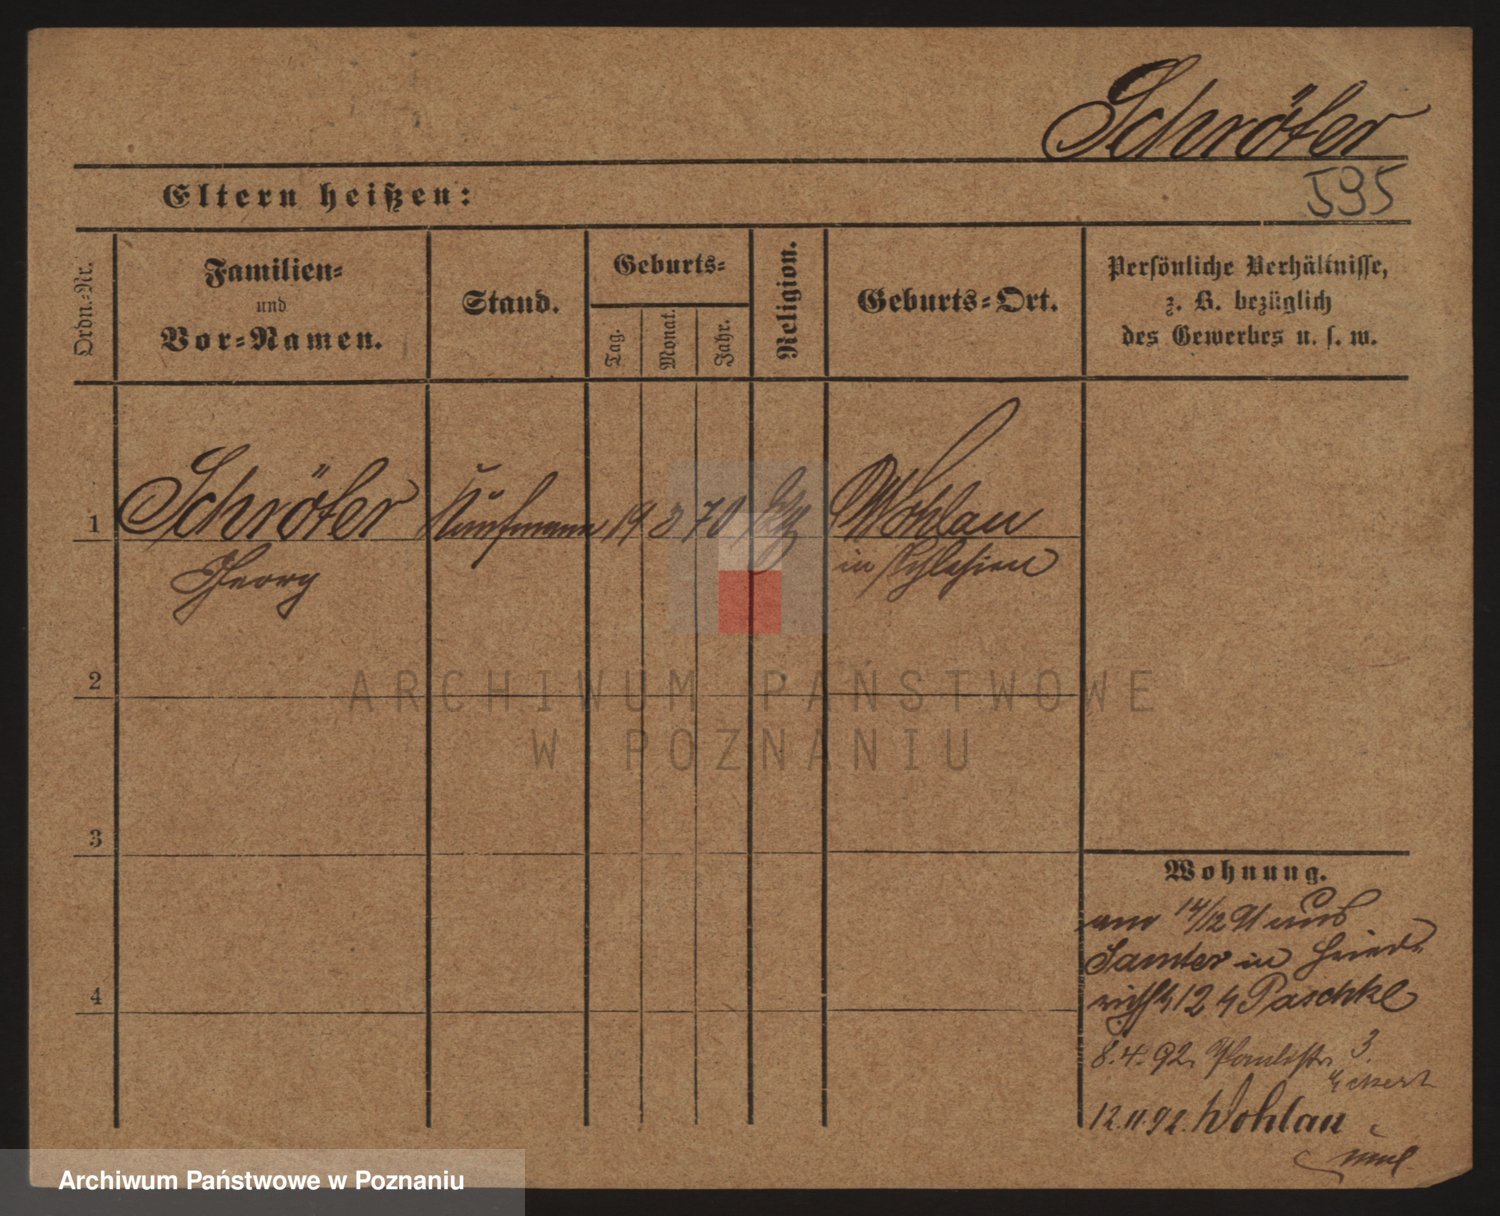 Schröter
595
Eltern heißen:
Ordn.-Nr.
Familien-
und
Vor-Namen.
Stand.
Geburts-
Tag.
Monat.
Jahr.
Religion.
Geburts-Ort.
Persönliche Verhältnisse,
z. B. bezüglich
des Gewerbes u. s. w.
1
Schröter
Georg
Kaufmann
19
3
70
Wohlau
in Schlesien
2
3
4
ARCHIWUM PAŃSTWOWE
W POZNANIU
Wohnung.
14/12 91 aus
Samter in Fried-
12 b/ Paschke
8.4.92. Paulistr. 3.
b/ Eckert
12.11.92. Wohlau
Archiwum Państwowe w Poznaniu